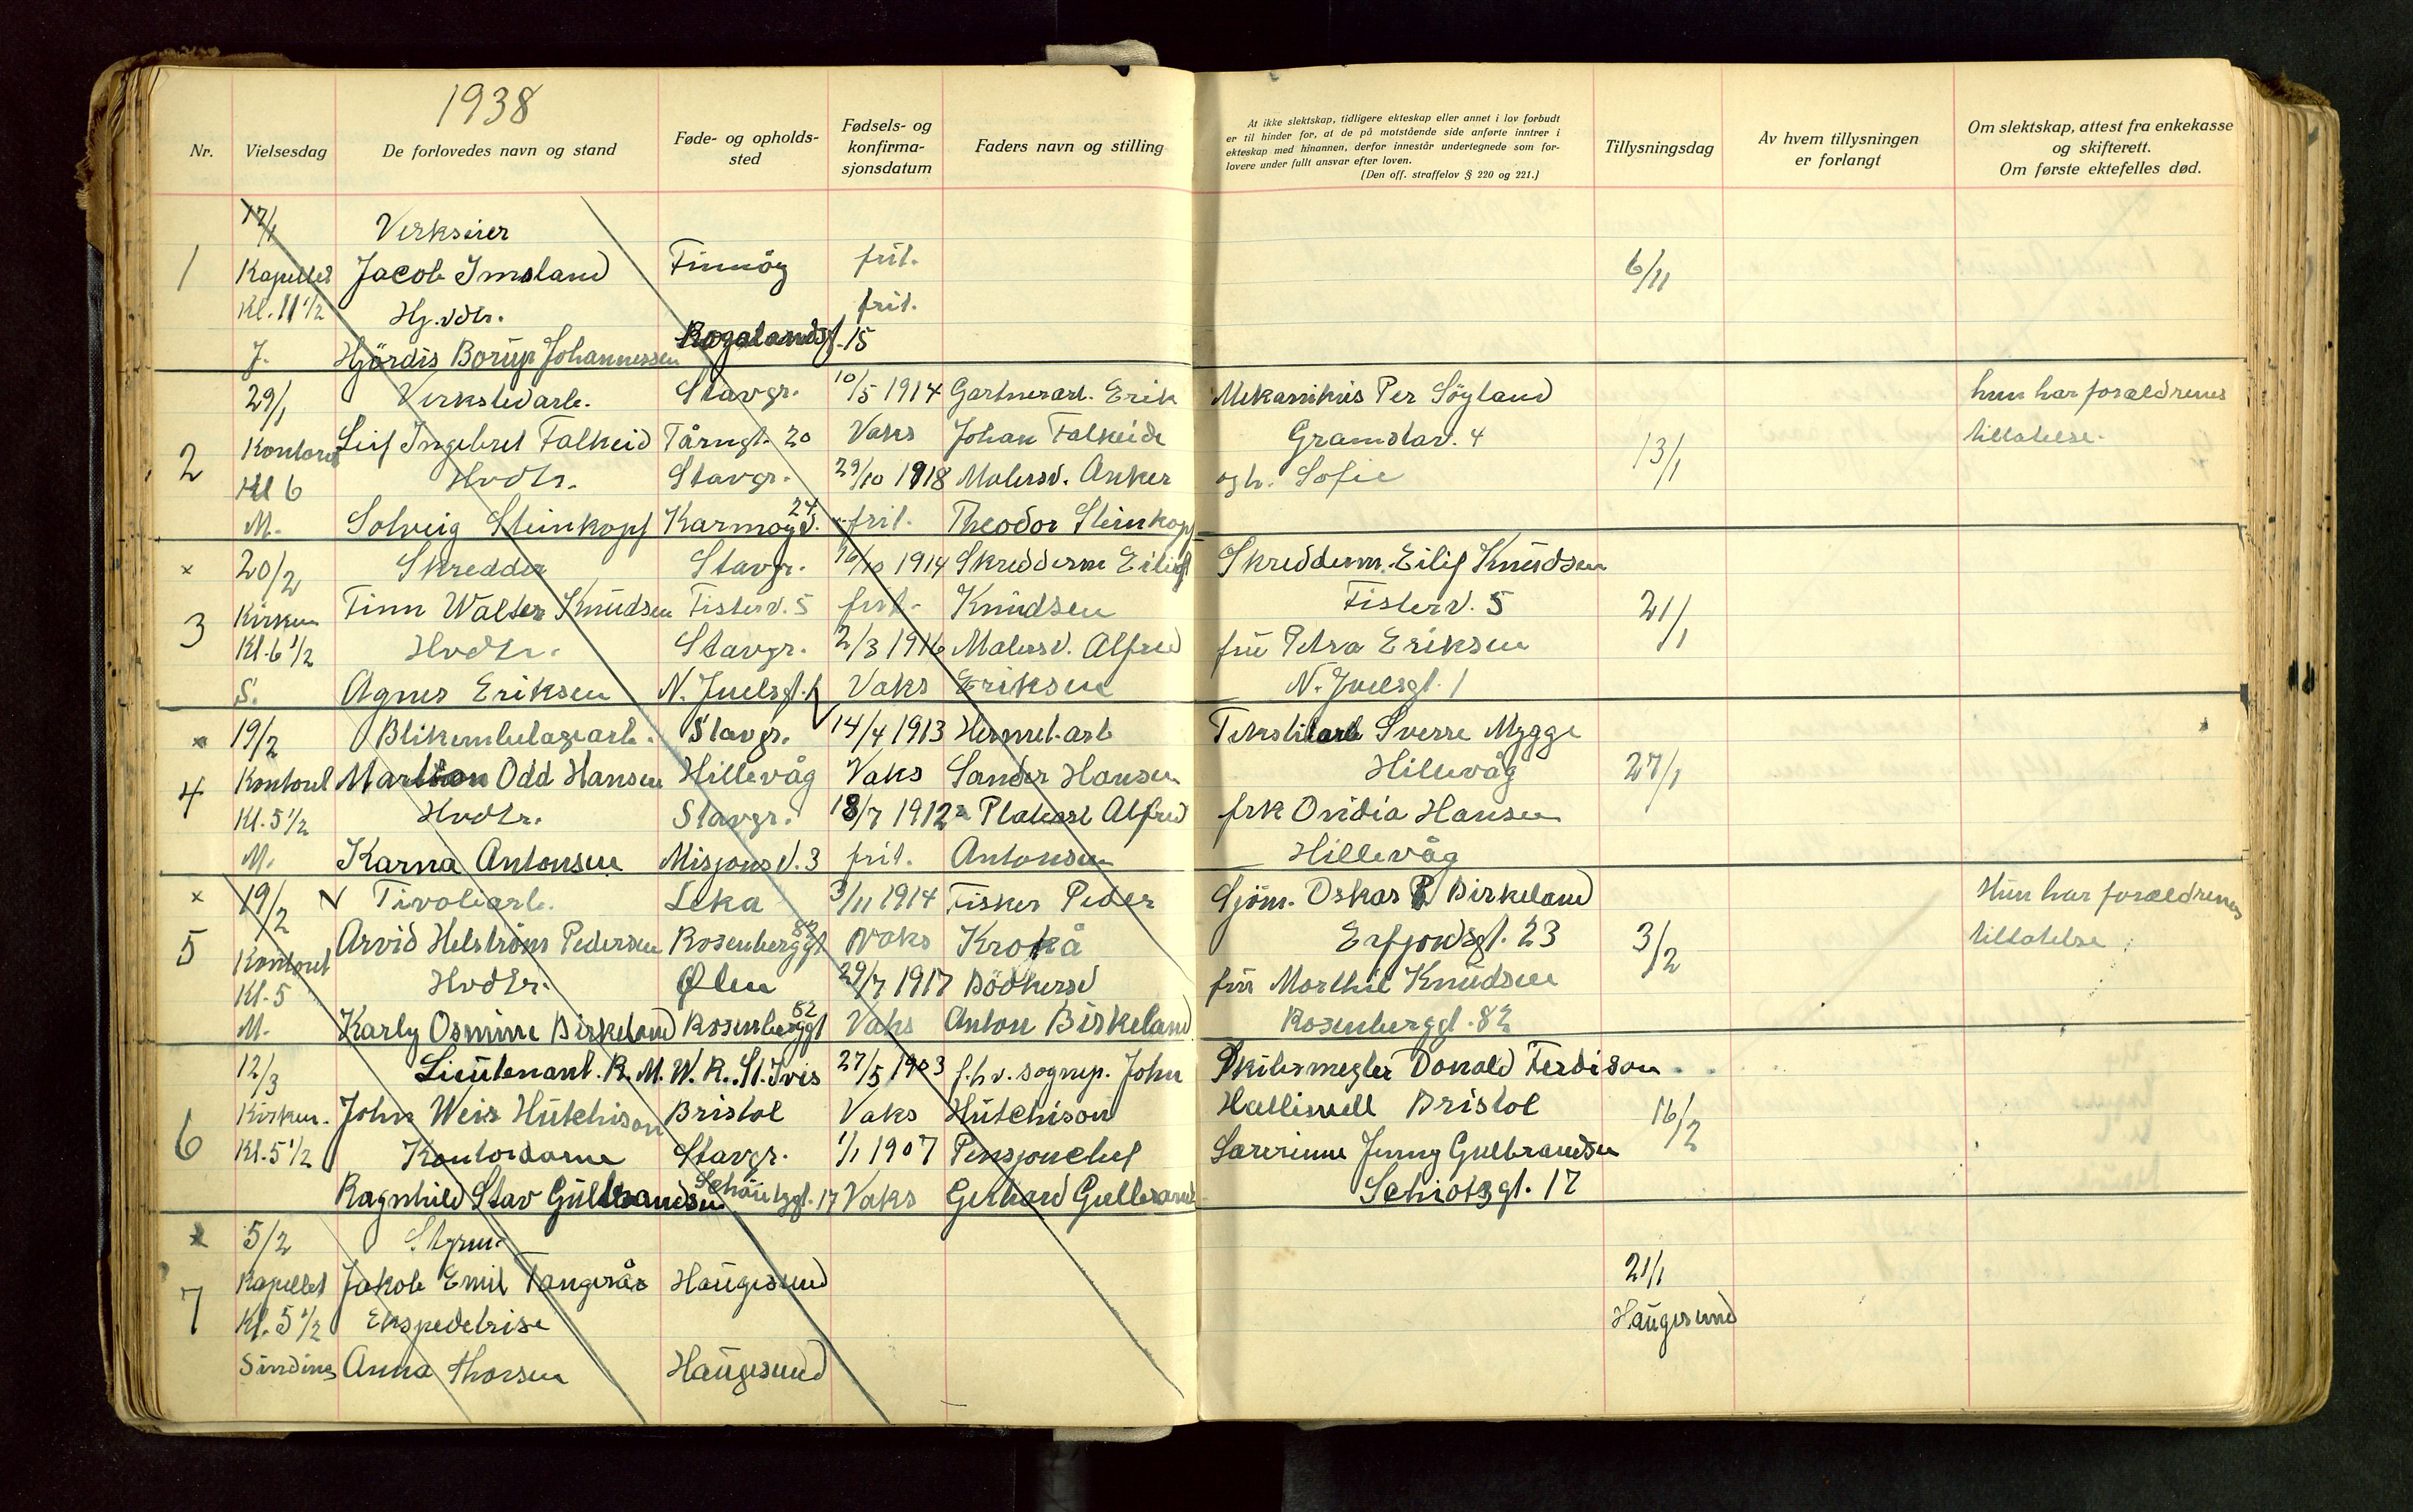 1938
Nr.
Vielsesdag
De forlovedes navn og stand
Føde- og opholds-
sted
Fødsels- og
konfirma-
sjonsdatum
Faders navn og stilling
At ikke slektskap, tidligere ekteskap eller annet i lov forbudt
er til hinder for, at de på motstående side anførte inntrer i
ekteskap med hinannen, derfor innestår undertegnede som for-
lovere under fullt ansvar efter loven.
(Den off. straffelov § 220 og 221.)
Tillysningsdag
Av hvem tillysningen
er forlangt
Om slektskap, attest fra enkekasse
og skifterett.
Om første ektefelles død.
17/1 Verkseier
1 Kapellet Jacob Imsland Finnöy frit. 6/11
Kl. 11 1/2 Hj. vdtr. frit.
J. Hjördis Borup Johannessen Rogalandsg. 15
29/1 Verkstedarb. Stavgr. 10/5 1914 Gartnerarb. Erik Mekanikus Per Söyland hun har forældrenes
2 Kontoret Leif Ingebret Falkeid Tårngt. 20 Vaks Johan Falkeide Gramstav. 4 13/1 tillatelse.
Kl 6 Hvdtr. Stavgr. 29/10 1918 Malersv. Anker og h. Sofie
M. Solveig Steinkopf Karmøyg. 24 frit. Theodor Steinkopf
x 20/2 Skredder Stavgr. 16/10 1914 Skredderm Eilif Skredderm. Eilif Knudsen
3 Kirken Finn Walter Knudsen Fisterv. 5 frit. Knudsen Fisterv. 5 21/1
Kl. 6 1/2 Hvdtr. Stavgr. 2/3 1916 Malersv. Alfred fru Petra Eriksen
S. Agnes Eriksen N. Juelsgt. 1 Vaks Eriksen N. Juelsgt. 1
x 19/2 Blikembelagearb. Stavgr. 14/4 1913 Hermet. arb Tekstilarb Sverre Mygge
4 Kontoret Odd Hansen Hillevåg Vaks Sander Hansen Hillevåg 27/1
Kl. 5 1/2 Hvdtr. Stavgr. 18/7 1912 Alfred frk Ovidia Hansen
M. Karna Antonsen Misjonsv. 3 frit. Antonsen Hillevåg
x 19/2 Tivoliarb. Leka 3/11 1914 Fisker Peder Sjöm. Oskar Birkeland Hun har forældrenes
5 Kontoret Arvid Helström Pedersen Rosenberggt 82 Vaks Krokå Erfjordsgt. 23 3/2 tillatelse
Kl. 5 Hvdtr. Ølen 29/7 1917 Bödkersv fru Marthil Knudsen
M. Karly Osmine Birkeland Rosenberggt 82 Vaks Anton Birkeland Rosenberggt. 82
12/3 Lieutenant. R. M. W. R. St. Ives 27/5 1903 f. h. v. sognep. John Skibsmegler Donald Ferdison
6 Kirken. John Weir Hutchison Bristol Vaks Hutchison Halliwell Bristol 16/2
Kl. 5 1/2 Kontordame Stavgr. 1/1 1907 Pensjonchef Lærerinne Jenny Gulbrandsen
Ragnhild Stav Gulbrandsen Schiøtzgt. 17 Vaks Gerhard Gulbrands Schiotzgt. 17
x 5/2 Styrm.
7 Kapellet Jakob Emil Tangerås Haugesund 21/1
Kl. 5 1/2 Ekspedetrise Haugesund
Sinding Anna Thorsen Haugesund